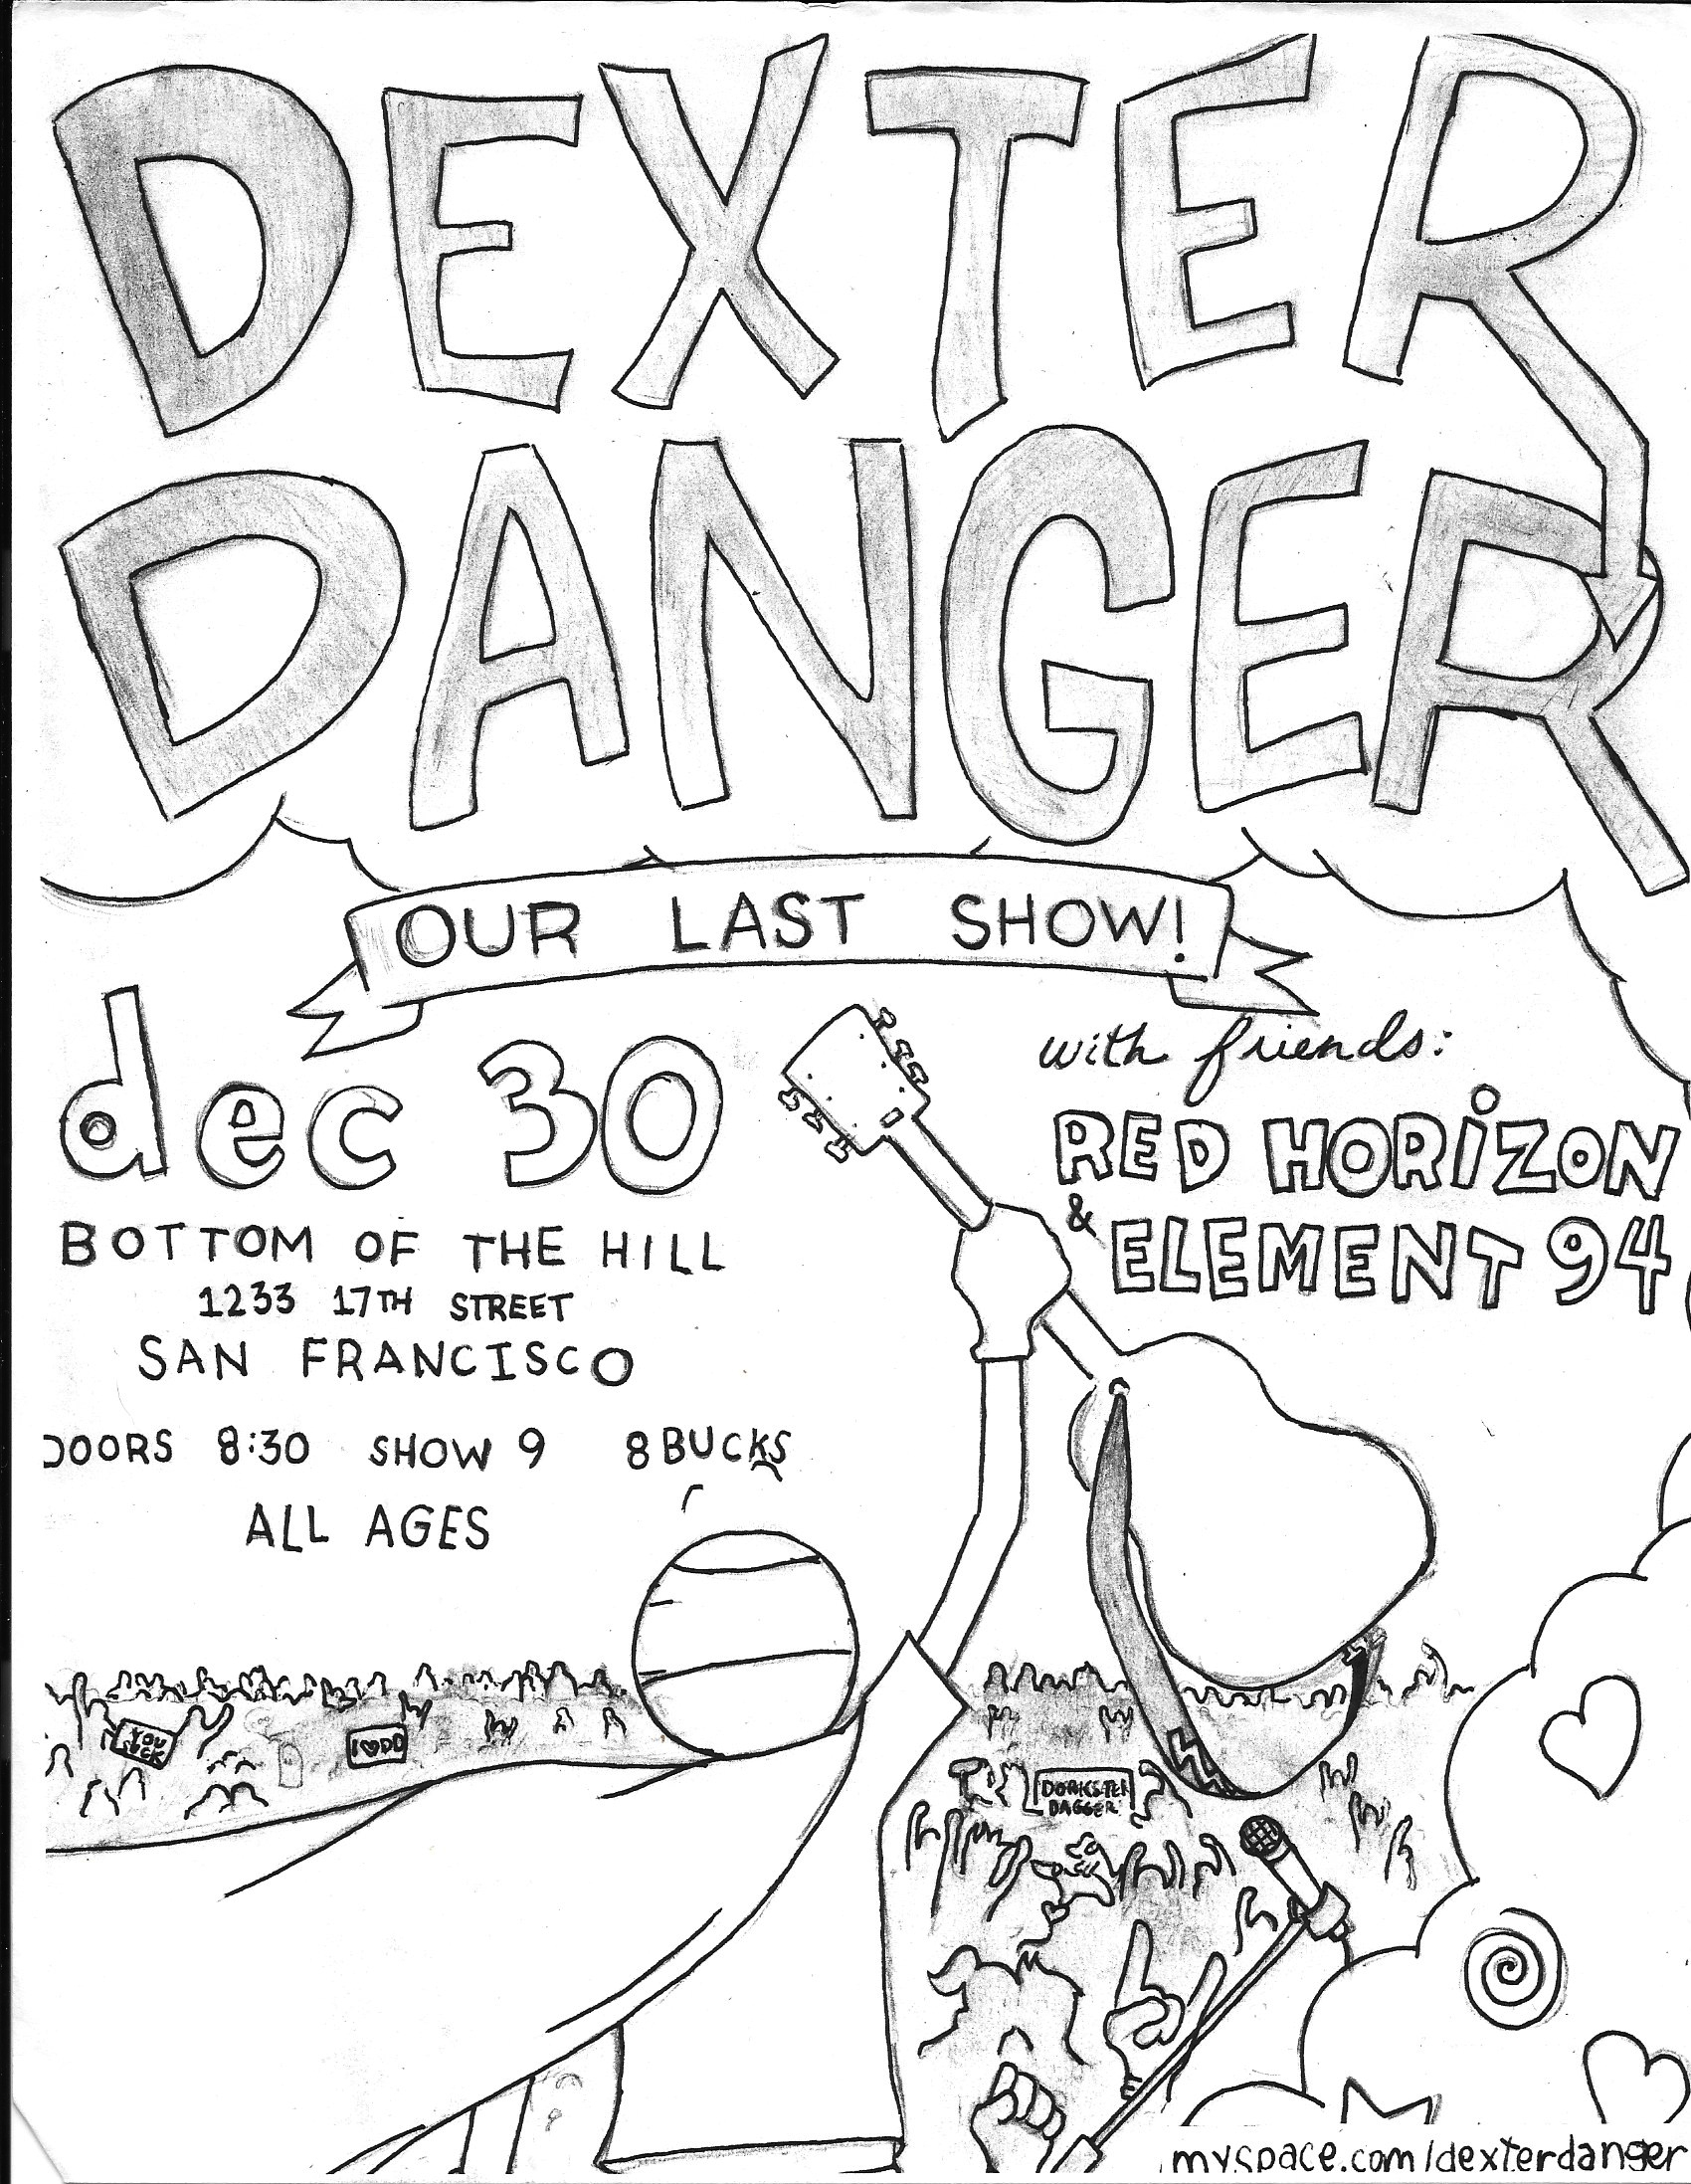 DEXTER
DANGER
OUR LAST SHOW!
dec 30
BOTTOM OF THE HILL
1233 17TH STREET
SAN FRANCISCO
DOORS 8:30 SHOW 9 8 BUCKS
ALL AGES
with friends:
RED HORiZON
& ELEMENT 94
YOU
SUCK
I ♥ DD
DORKSTER
DAGGER
myspace.com/dexterdanger